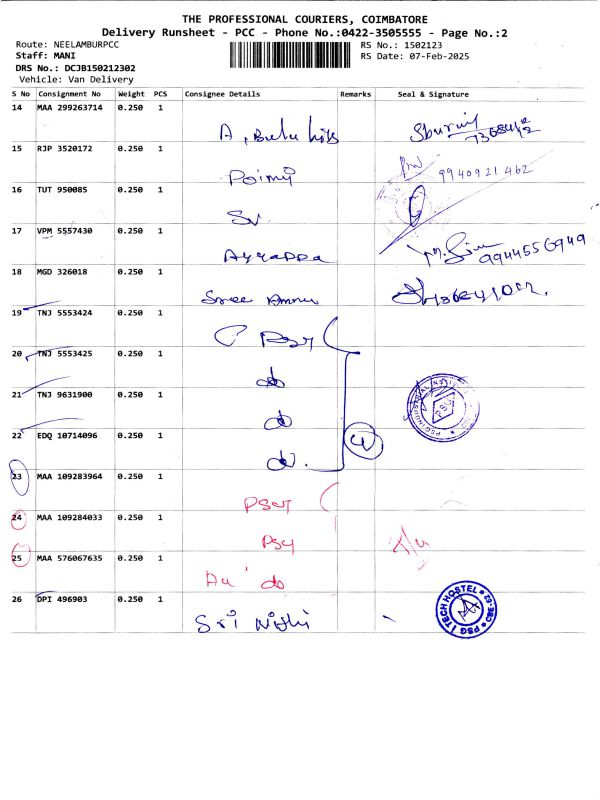 THE PROFESSIONAL COURIERS, COIMBATORE
Delivery Runsheet - PCC - Phone No.:0422-3505555 - Page No.:2
Route: NEELAMBURPCC
RS No.: 1502123
Staff: MANI
RS Date: 07-Feb-2025
DRS No.: DCJB150212302
Vehicle: Van Delivery
S No Consignment No Weight PCS Consignee Details Remarks Seal & Signature
14 MAA 299263714 0.250 1
15 RJP 3520172 0.250 1
9940921462
16 TUT 950085 0.250 1
17 VPM 5557430 0.250 1 Ayyappa 9944556949
18 MGD 326018 0.250 1 Sree
19 TNJ 5553424 0.250 1
20 TNJ 5553425 0.250 1 do
21 TNJ 9631900 0.250 1 do
22 EDQ 10714096 0.250 1 do. 4
23 MAA 109283964 0.250 1
24 MAA 109284033 0.250 1
25 MAA 576067635 0.250 1 do
26 DPI 496903 0.250 1 Sri Nidhi PSG iTECH HOSTEL